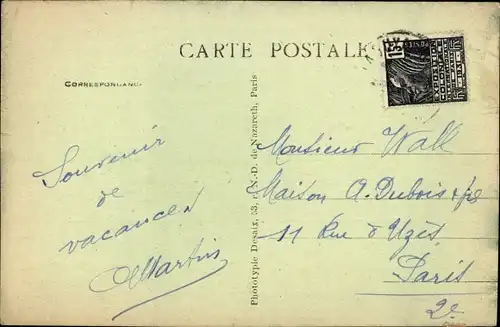 CARTE POSTALE
CORRESPONDANCE
Souvenir
de
vacances
Martin
Phototypie Desaix, 33, r. N.-D. de Nazareth, Paris
Monsieur Wall
Maison A. Dubois & fils
11 Rue d'Uzès
Paris
2e